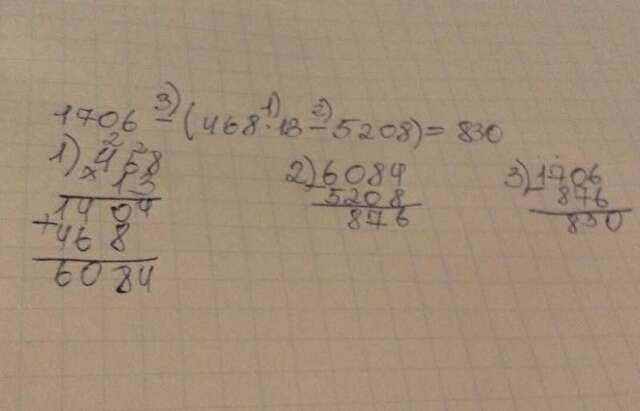 1706 - (468 · 13 - 5208) = 830
3) 1) 2)
1) 468
2 2
× 13
1404
+ 468
6084
2) - 6084
5208
876
3) - 1706
876
830